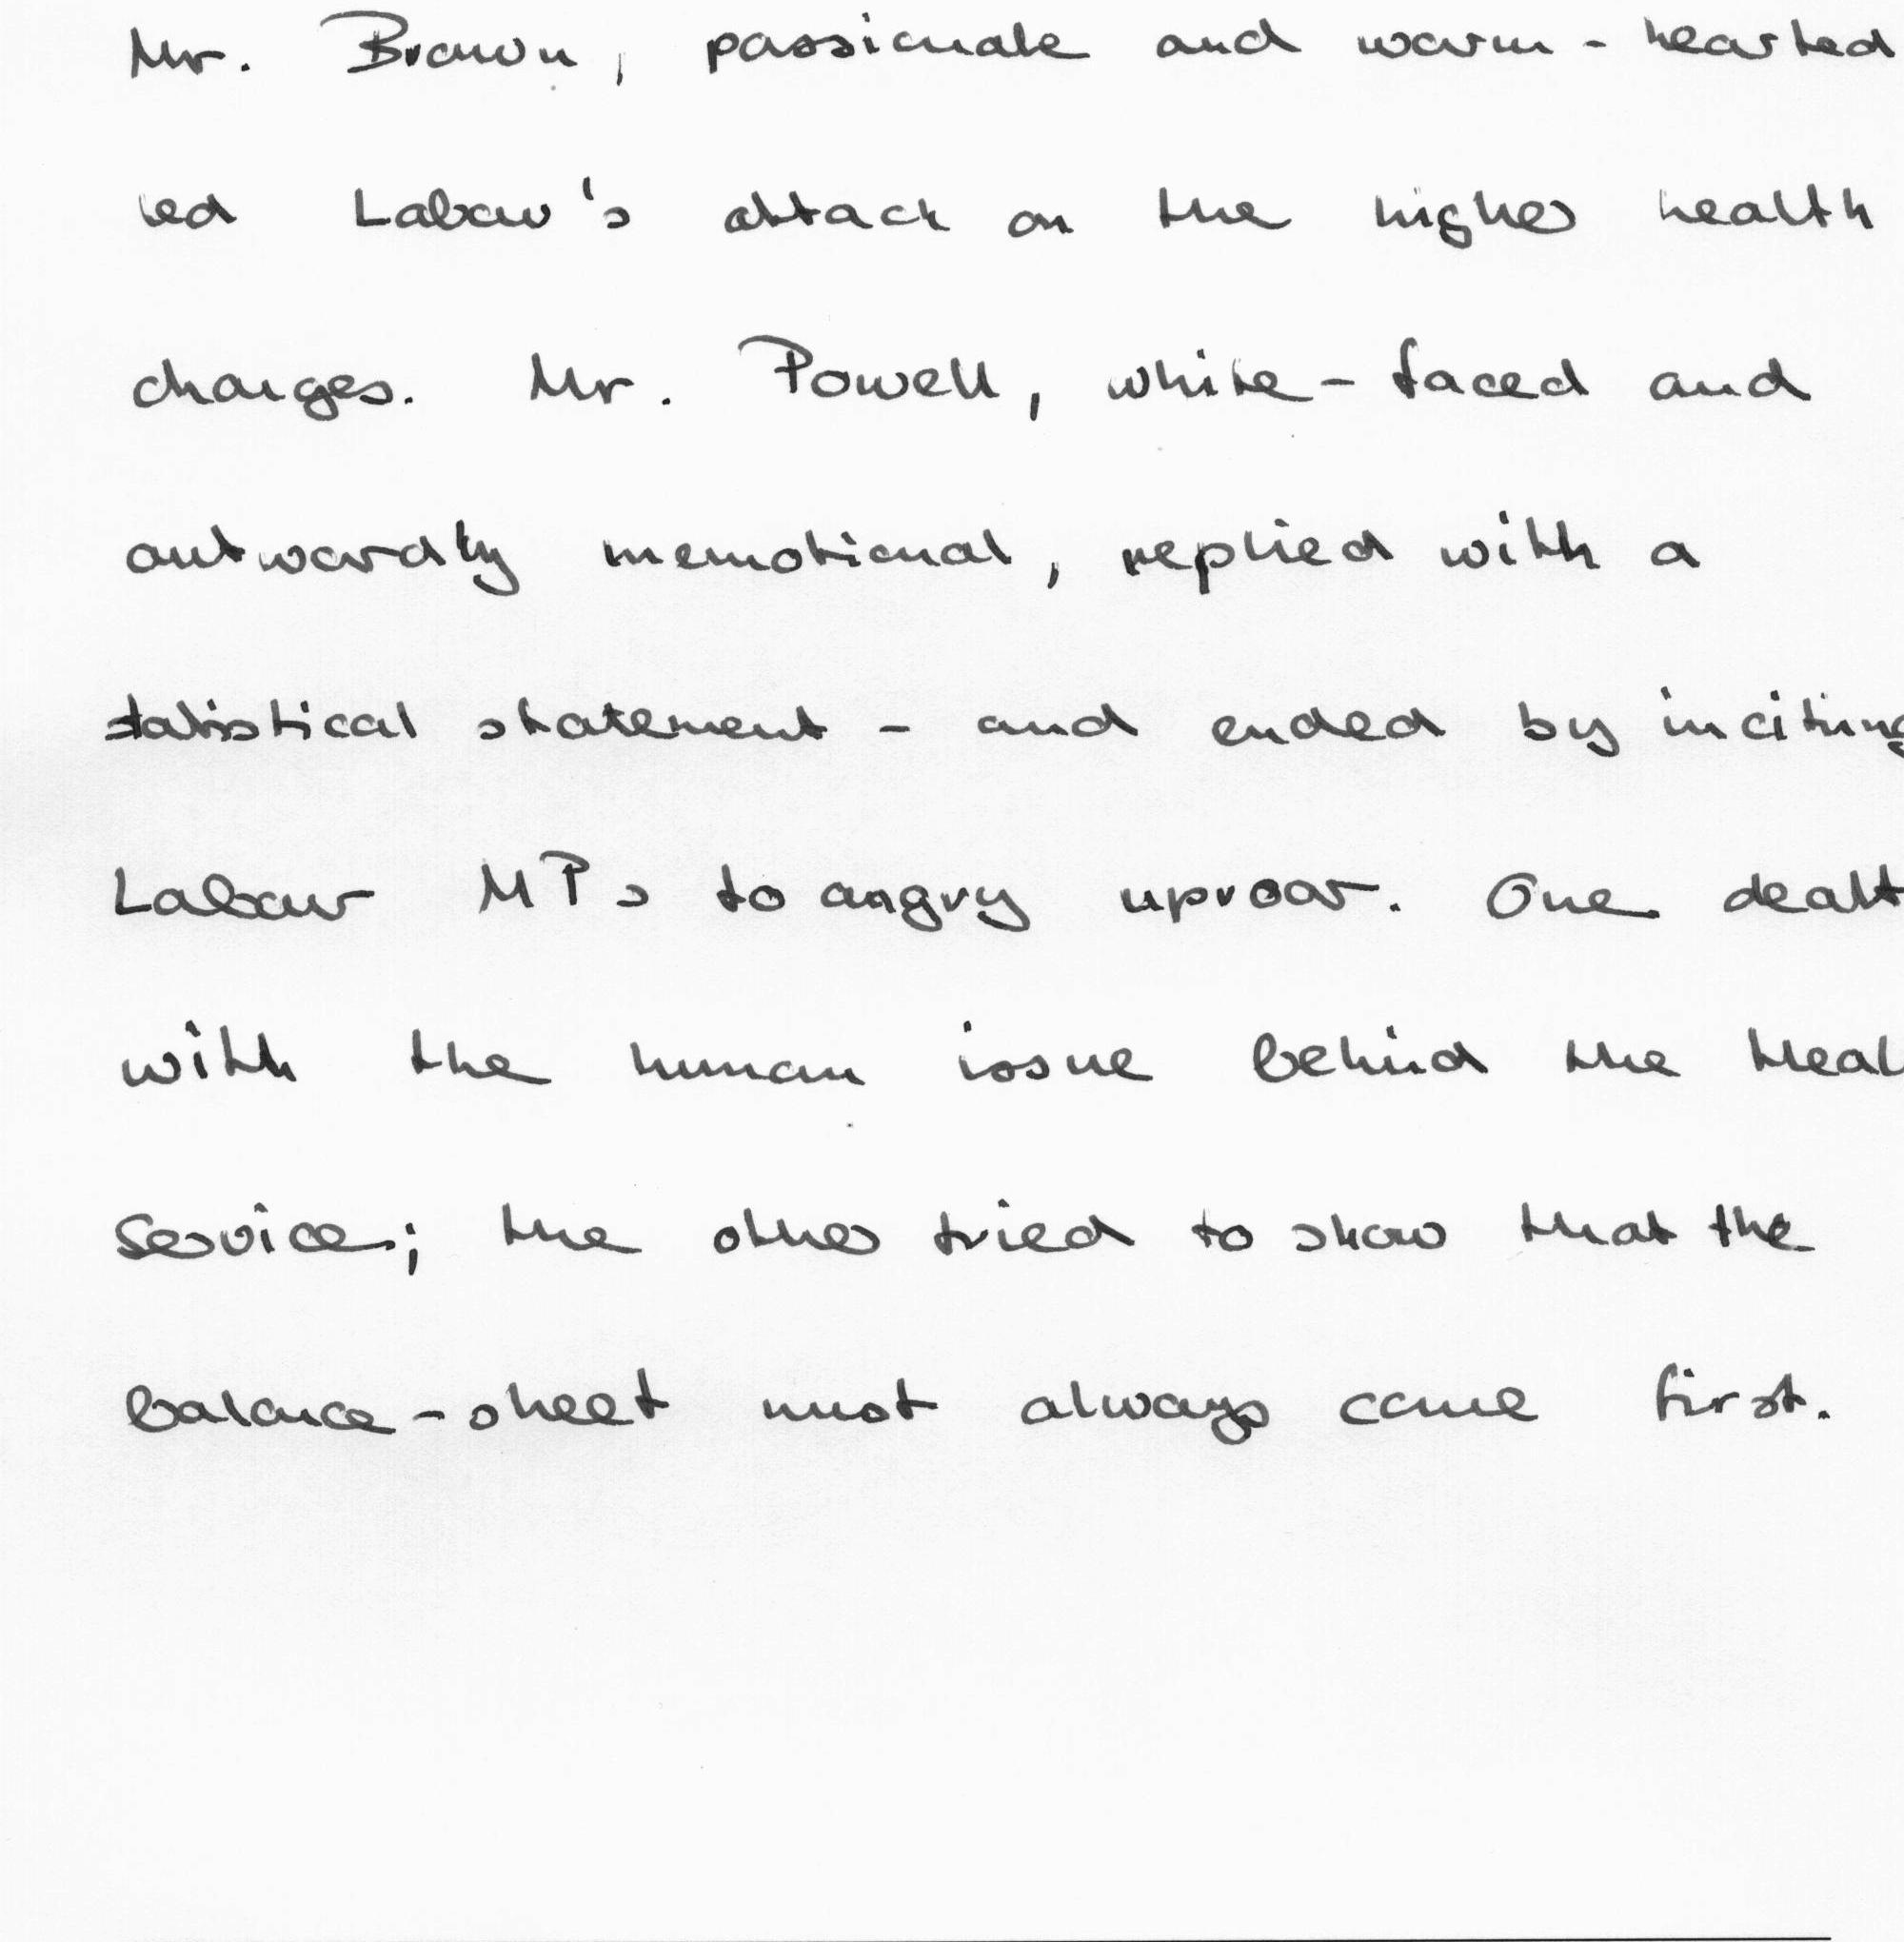 Mr. Brown, passionate and warm-hearted
led Labour's attack on the higher health
charges. Mr. Powell, white-faced and
outwardly unemotional, replied with a
statistical statement - and ended by inciting
Labour MPs to angry uproar. One dealt
with the human issue behind the Heal
Service; the other tried to show that the
balance-sheet must always come first.